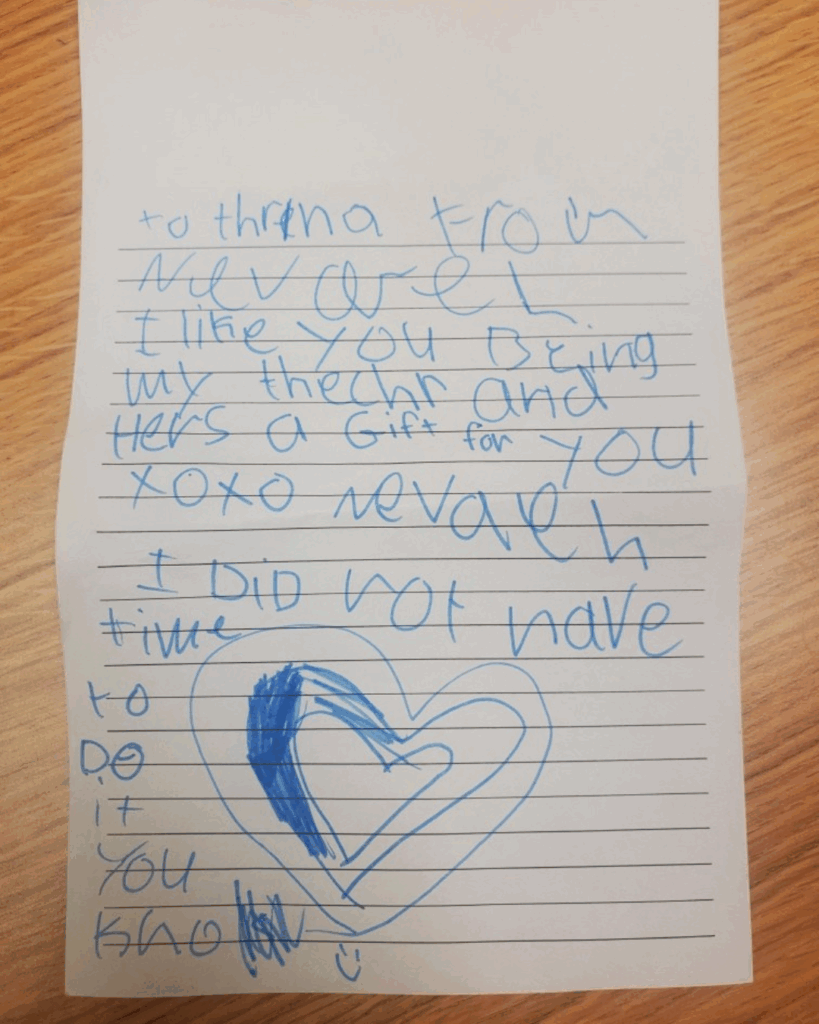 to thrina from
Nevaeh
I like you Being
my thechr and
Hers a Gift for you
xoxo nevaeh
I DiD not have
time
to
Do
it
you
kno